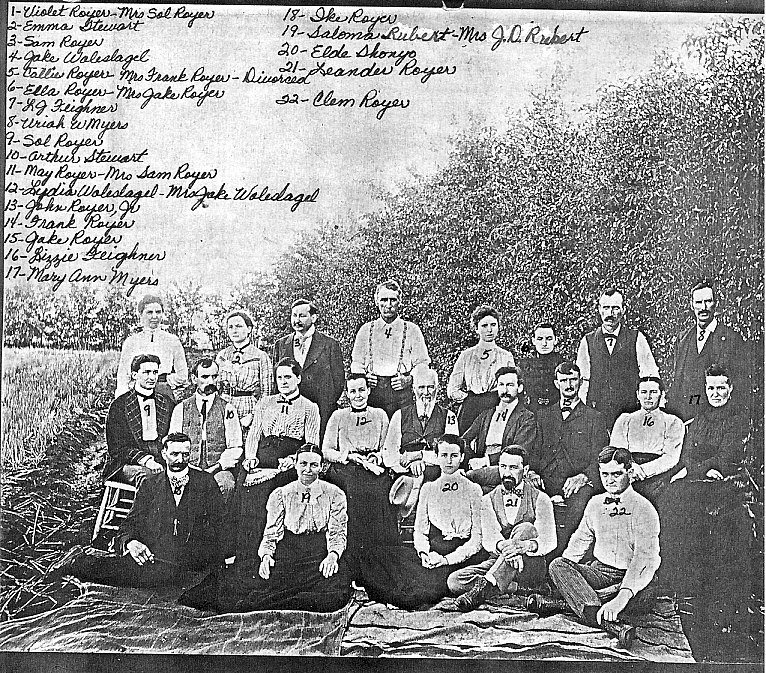 1- Violet Royer-Mrs Sol Royer
2- Emma Stewart
3- Sam Royer
4- Jake Waleslagel
5- Tallie Royer- Mrs Frank Royer - Divorced
6- Ella Royer- Mrs Jake Royer
7- L J Feighner
8- Uriah W Myers
9- Sol Royer
10- Arthur Stewart
11- May Royer-Mrs Sam Royer
12- Lydia Waleslagel - Mrs Jake Waleslagel
13- John Royer, Jr
14- Frank Royer
15- Jake Royer
16- Lizzie Feighner
17- Mary Ann Myers
18- Ike Royer
19- Saloma Rubert-Mrs J.D. Rubert
20- Elde Shonyo
21- Leander Royer
22- Clem Royer
4
5
9
10
11
12
13
14
16
17
20
21
22